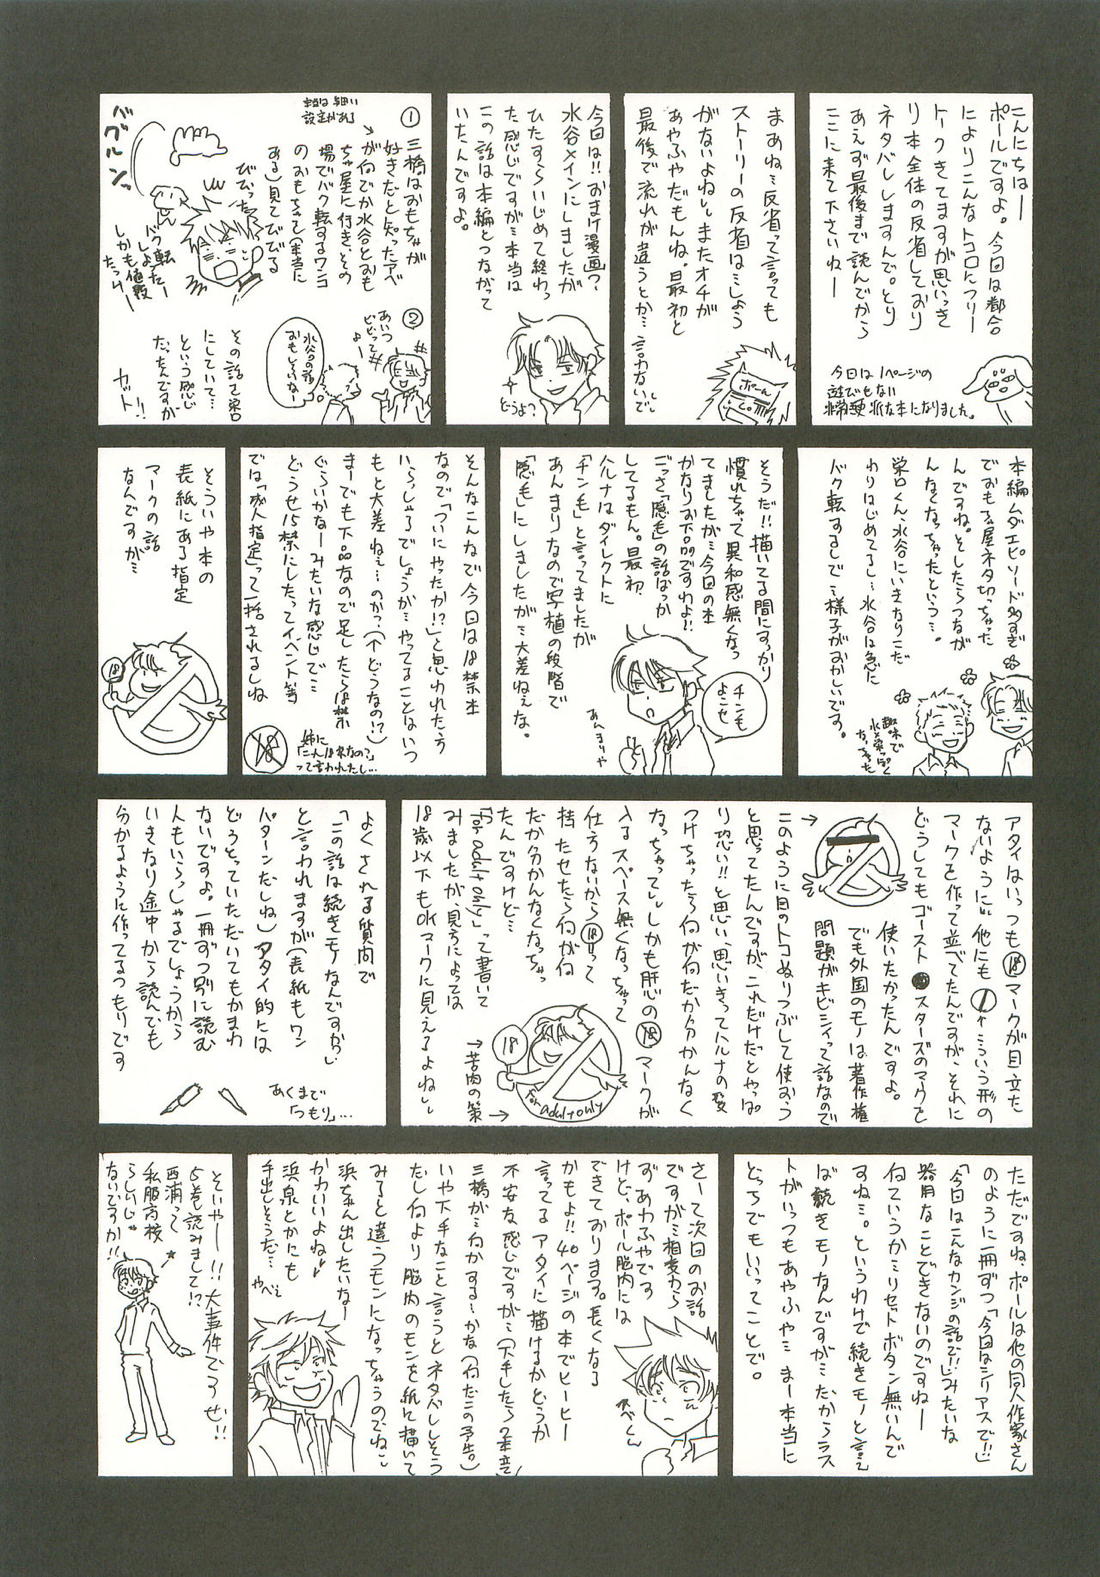 こんにちはー
ポールですよ。今回は都合
によりこんなトコロにフリー
トークきてますが思いっき
り本全体の反省しており
ネタバレしますんで。とり
あえず最後まで読んでから
ここに来て下さいねー
今日は1ページの
遊びもない
非常硬派な本になりました。
まあね…反省って言っても
ストーリーの反省は…しよう
がないよねし。またオチが
あやふやだもんね。最初と
最後で流れが違うとか…言わないで
今回は!!おまけ漫画?
水谷×メインにしましたが
ひたすらいじめて終わっ
た感じですが…本当は
この話は本編とつながって
いたんですよ。
どうよ?
①
三橋はおもちゃが
好きだと知ったアベ
が何でか水谷とおも
ちゃ屋に付き、その
場でバク転するワンコ
のおもちゃで(本当に
ある)見てでてる
びびった
バク転した
しかも値段
たっけー
②
あいつ
ビビってよー
水谷の話
おもしれぇなー
その話を栄口
にしていて…
という感じ
だったんですが
カット!!
本編ムダエピソード多すぎ
でおもちゃ屋ネタ切っちゃった
んですね。そしたらつなが
んなくなっちゃったという…。
栄口くん、水谷にいきなりこだ
わりはじめてるし…水谷は急に
バク転するしで…様子がおかしいです。
趣味で
そうだ!!描いてる間にすっかり
慣れちゃって異和感無くなっ
てましたが…今回の本
かなりお下品ですわよ!!
ごっさ「陰毛」の話ばっか
してるもん。最初、
ハルナはダイレクトに
「チン毛」と言ってましたが
あんまりなので写植の段階で
「陰毛」にしましたが…大差ねぇな。
チン毛
よこせ
あんまりや
そんなこんなで今回は18禁本
なので「ついにやったか!?」と思われたら
いらっしゃるでしょうが…やってることはいつ
もと大差ねぇ…のか?(へどうなの!?)
ま…でも下品なので足したら18禁
ぐらいかなーみたいな感じで…
どうせ15禁にしたってイベント等
では「成人指定」って一括されるしね
姉に
「こんな18禁なの?」
って言われたし…
そういや本の
表紙にある指定
マークの話
なんですが…
18
アタイはいつも⑱マークが目立た
ないように〃他にも こういう形の
マークを作って並べてたんですが、それに
どうしてもゴースト●スターズのマークを
使いたかったんですよ。
でも外国のモノは著作権
問題がキビシイって話なので
このように目のトコぬりつぶして使おう
と思ってたんですが、これだけだとやっぱ
り恐い!!と思い、思いきってハルナの髪
つけちゃったら何が何だか分かんなく
なっちゃってし。しかも肝心の⑱マークが
入るスペース無くなっちゃって
仕方ないから⑱持って
持たせたら何が何
だか分かんなくなっちゃっ
たんですけど…
「for adult only」って書いて
みましたが、見方によっては
18歳以下もOKマークに見えるよねし
→苦肉の策→
18
For adult only
よくされる質問で
「この話は続きモノなんですか?」
と言われますが(表紙もワン
パターンだしね)アタイ的には
どうとっていただいてもかまわ
ないですよ。一冊ずつ別に読む
人もいらっしゃるでしょうから
いきなり途中から読んでも
分かるように作ってるつもりです
あくまで
「つもり」…
ただですね、ポールは他の同人作家さん
のように一冊ずつ「今回はシリアスで!!」
「今回はこんなカンジの話で!!」みたいな
器用なことできないのですねー
何ていうか…リセットボタン無いんで
すね…。というわけで続きモノと言え
ば続きモノなんですが…だからラス
トがいつもあやふや…まー本当に
どっちでもいいってことで。
さーて次回のお話
ですが…相変わら
ずあわふやです
けど、ポール脳内には
できております。長くなる
かもよ!!40ページの本でヒーヒー
言ってるアタイに描けるかどうか
不安な感じですが…(へ下手したら2本立)
三橋が…何かする…かな(何だこの予告。)
いや下手なこと言うとネタバレしそう
だし何より脳内のモンを紙に描いて
みると違うモンになっちゃうのでねし
浜ちゃん出したいなー
かわいいよね♪
浜泉とかにも
手出しそうだ…やべぇ
そいやー!!大事件ですぜ!!
5巻読みまして!?
西浦って
私服高校
らしいじゃ
ないですか!!